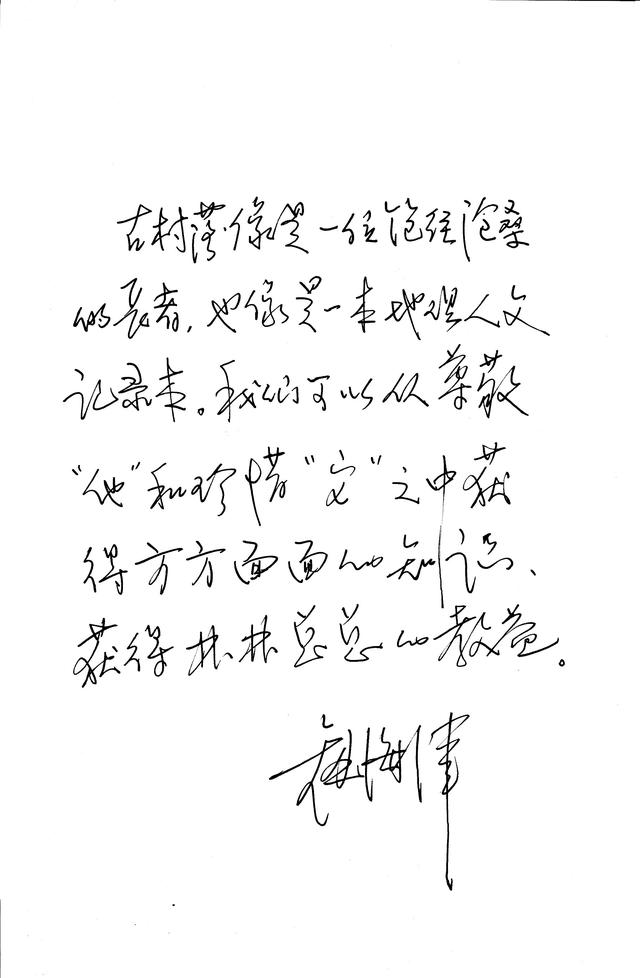 古村落像是一位饱经沧桑
的长者,也像是一本地理人文
记录本。我们可以从尊敬
“他”和珍惜“它”之中获
得方方面面的知识、
获得林林总总的教益。